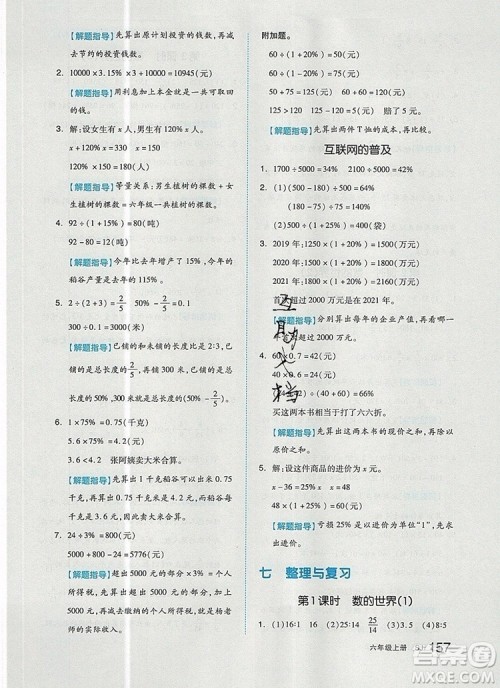 【解题指导】先算出原计划投资的钱数，再减
去节约的投资钱数。
2. 10000×3.15%×3+10000=10945(元)
【解题指导】用利息加上本金就是一共可取回
的钱。
3. 解：设女生有x人，男生有120%x人。
x+120%x=330 x=150
120%×150=180(人)
【解题指导】等量关系：男生植树的棵数+女
生植树的棵数=六年级一共植树的棵数。
4. 92÷(1+15%)=80(吨)
92-80=12(吨)
【解题指导】今年比去年增产了15%，今年的
稻谷产量是去年的115%。
5. 2÷(2+3)=2/5 50%-2/5=0.1
300÷0.1=3000(米)
【解题指导】已铺的和未铺的长度比是2∶3，已
铺的就是总长度的2/5，再铺300米，已铺的就
是总长度的50%。
6. 1×75%=0.75(千克)
5.6×0.75=4.2(元)
3.6<4.2 张阿姨卖大米合算。
【解题指导】先算出1千克稻谷可碾出0.75千
克大米，再算出0.75千克大米能卖多少元，而
稻谷每千克3.6元，最后比较即可。
7. 24÷3%=800(元)
5000+800-24=5776(元)
【解题指导】超出5000元的部分×3%=24
元，求出超出5000元的部分，再加上5000元就
是何叔叔上月的收入，减去24元就是他上月
的实际收入。
附加题。
60÷(1+20%)=50(元)
60÷(1-20%)=75(元)
50+75=125(元) 60×2=120(元)
125>120 125-120=5(元) 赔了5元。
【解题指导】先算出两件T恤的成本，再算出售
价，再比较。
互联网的普及
1. (2000-1160)÷2000=42%
1160+(2000-1160)×65%=1706(户)
1706÷2000=85.3%
2. (1)(500-180)÷500=64%
(180-75)÷180≈58.3%
(2)500÷(1+25%)=400(袋)
3. 2019年：1250×(1+20%)=1500(万元)
2020年：1500×(1+20%)=1800(万元)
2021年：1800×(1+20%)=2160(万元)
首次超过2000万元是在2021年。
【解题指导】分别算出每年的企业产值，再看哪
一年首次超过2000万元。
4. 60×0.7=42(元)
40×0.6=24(元)
(42+24)÷(40+60)=66%
买这两本书相当于打了六六折。
【解题指导】先算出这两本书的原价之和，再算
出现价之和。
5. 解：设这件商品的进价为x元。
x-36=25%x x=48
48×(1+25%)=60(元)
【解题指导】亏损25%是以进价为单位“1”，先
求出进价。
互助文档
七 整理与复习
第1课时 数的世界(1)
1. (1)16∶1 16 (2)25∶14 25/14 (3)4∶5 (4)8∶5
六年级上册 157
答案圈